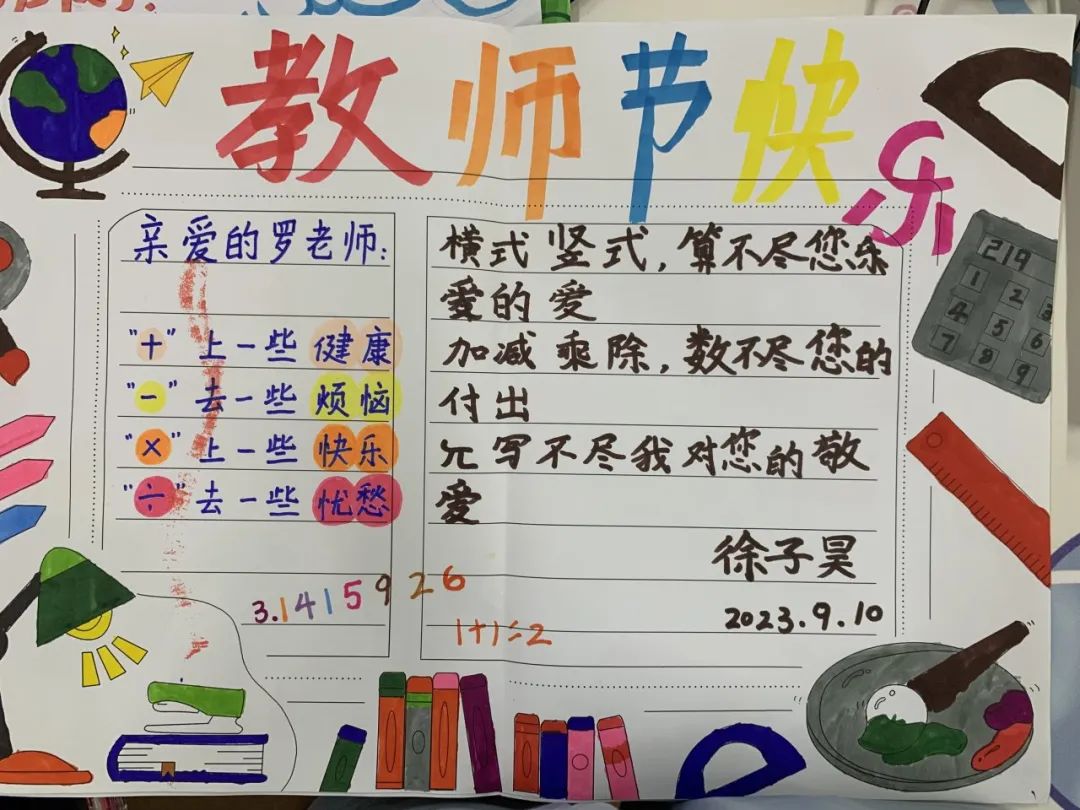 教师节快乐
亲爱的罗老师:
"+"上一些健康
"-"去一些烦恼
"×"上一些快乐
"÷"去一些忧愁
3.1415926
横式竖式,算不尽您乐
爱的爱
加减乘除,数不尽您的
付出
π写不尽我对您的敬
爱
徐子昊
2023.9.10
1+1=2
219
1 2 3
4 5 6
7 8 9